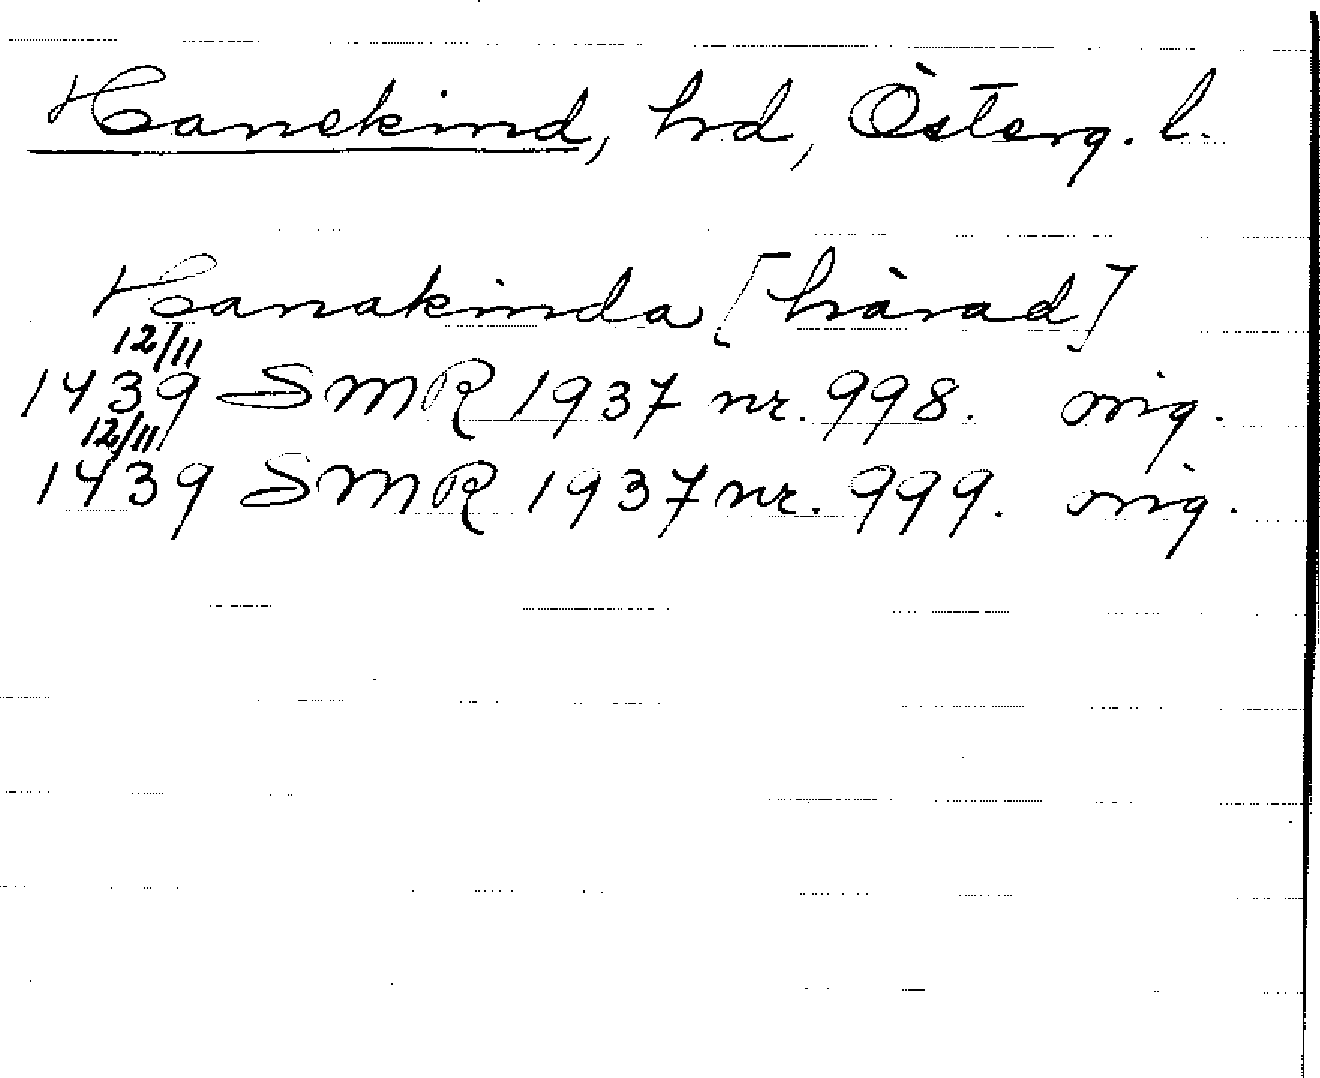 Hanekind, hd, Österg. l.
Hanakinda [härad]
12/11
1439 SMR 1937 nr. 998. orig.
12/11
1439 SMR 1937 nr. 999. orig.